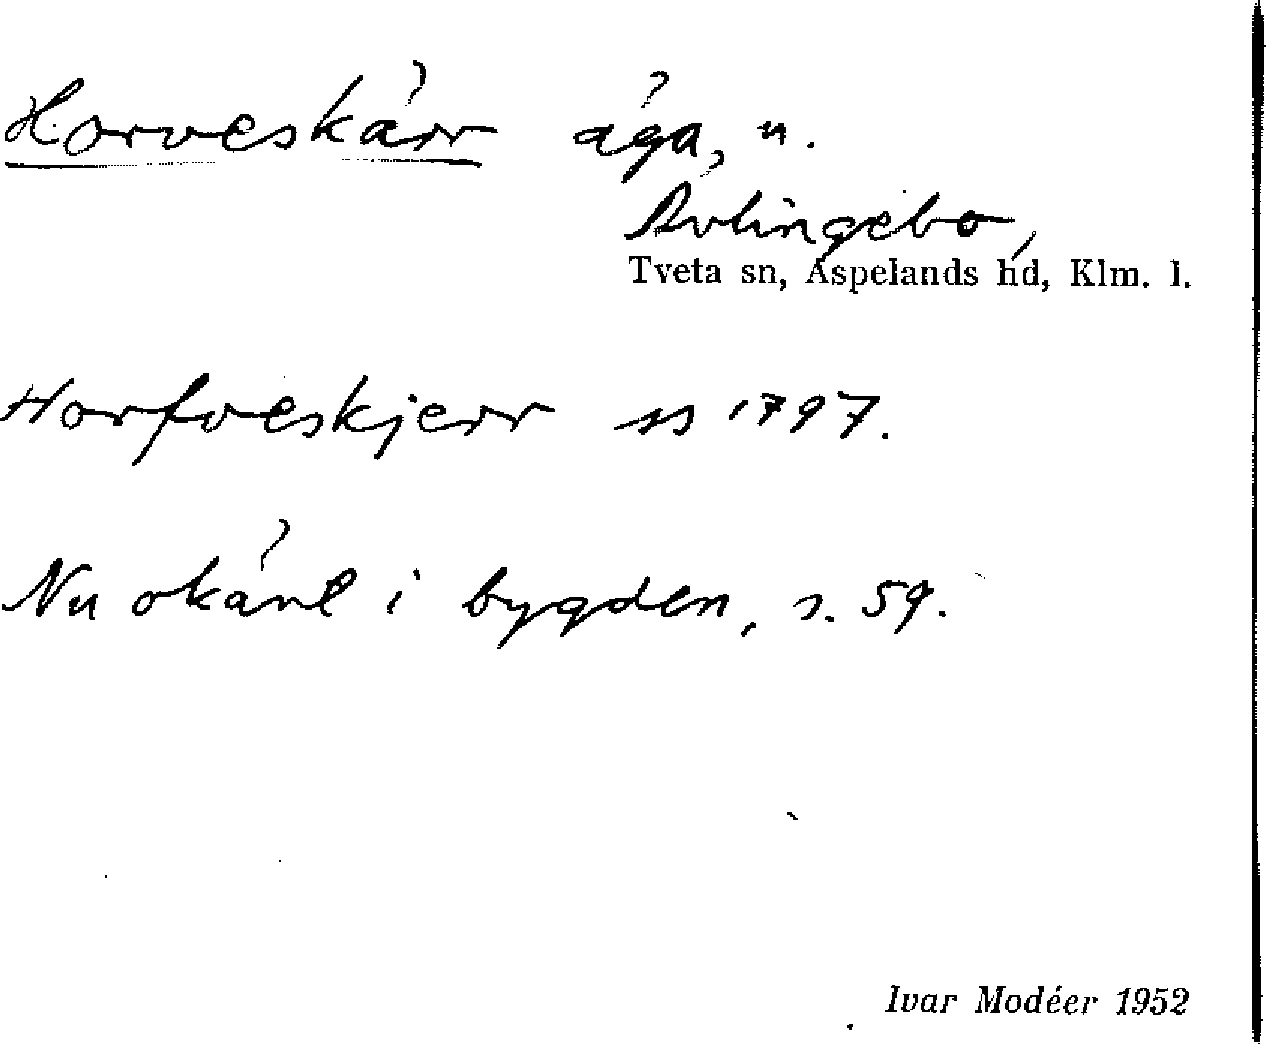 Horveskärr äga, n.
Ävlingebo,
Tveta sn, Aspelands hd, Klm. l.
Horfveskjerr ss 1797.
Nu okänt i bygden, s. 59.
Ivar Modéer 1952